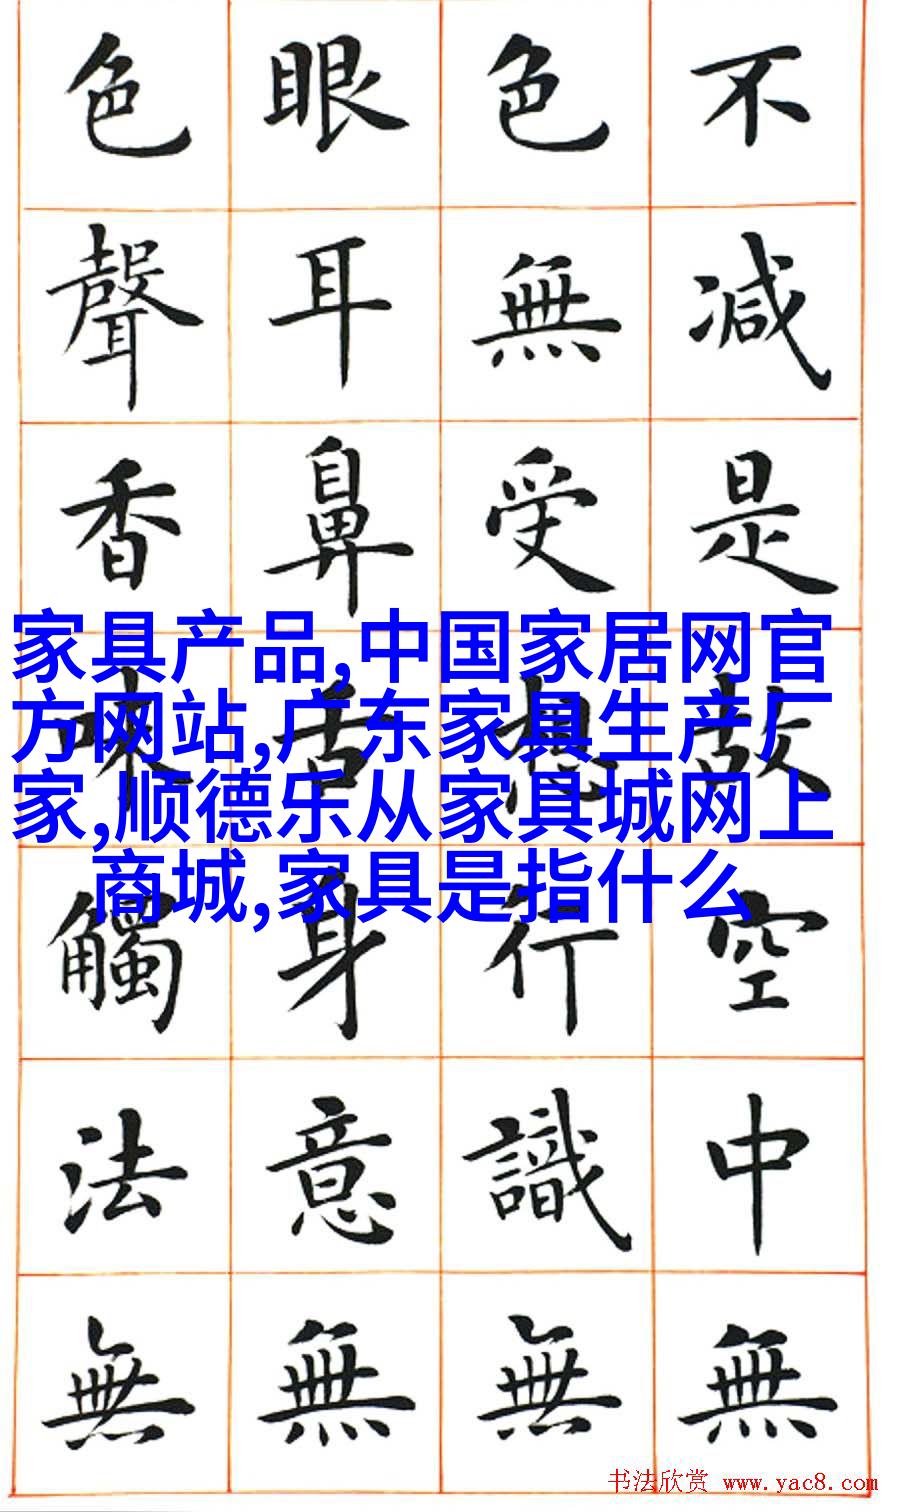 不减是故空中無
色無受想行識無
眼耳鼻舌身意無
色聲香味觸法無
家具产品,中国家居网官
方网站,广东家具生产厂
家,顺德乐从家具城网上
商城,家具是指什么
书法欣赏 www.yac8.com